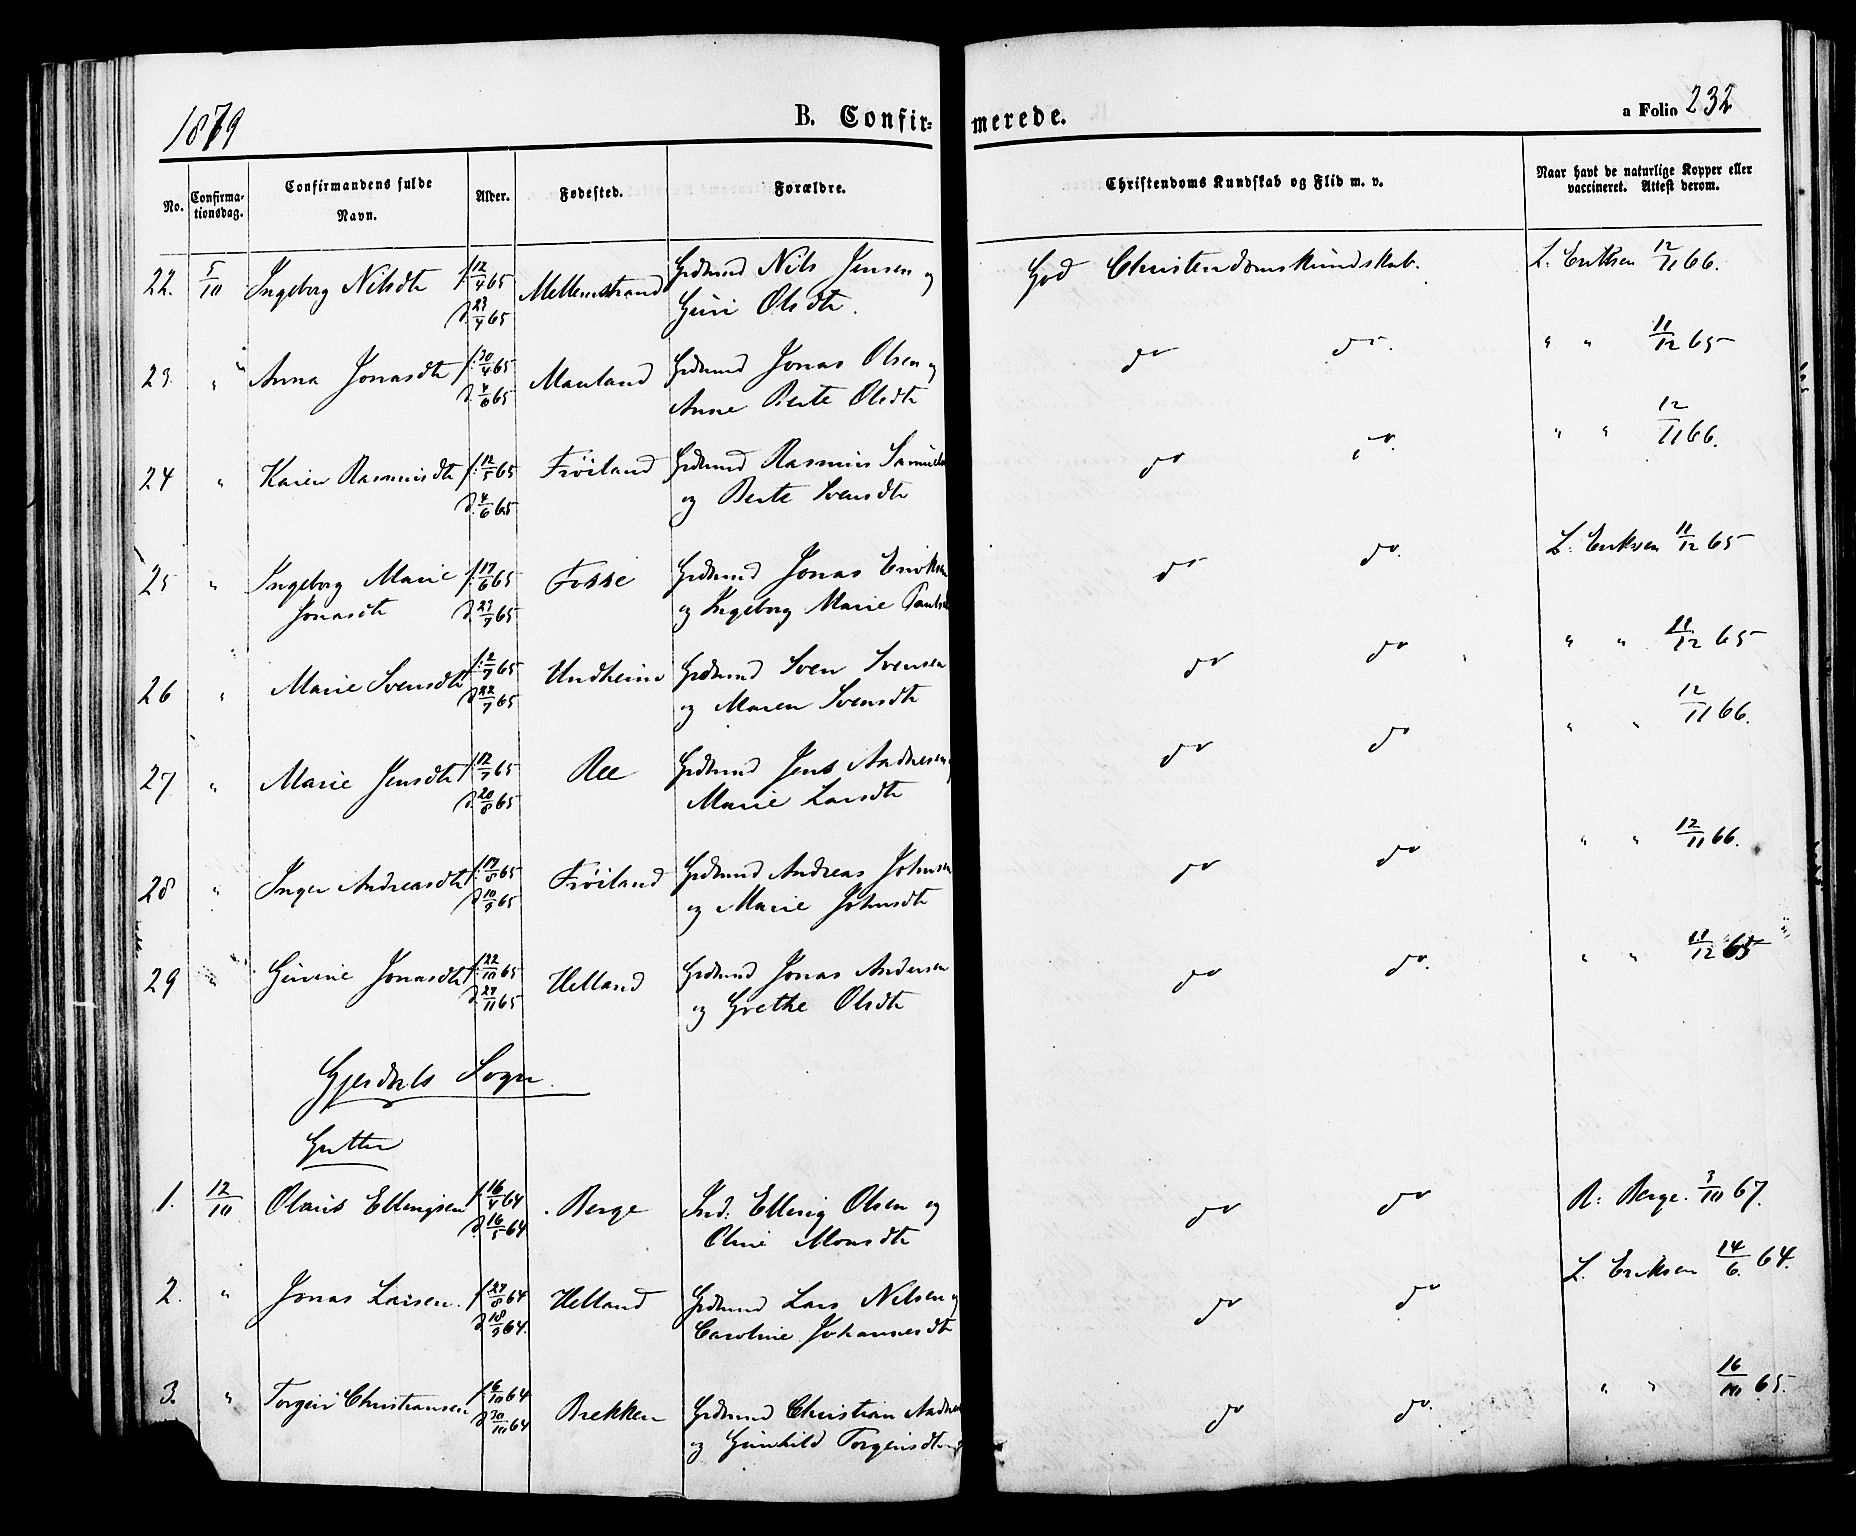 1879 B. Confirmerede. a Folio 232
No. Confirmationsdag. Confirmandens fulde Navn. Alder. Fødested. Forældre. Christendoms Kundskab og Flid m. v. Naar havt de naturlige Kopper eller vaccineret. Attest derom.
22. 5/10 Ingeborg Nilsdtr f. 12/4 65 Mellemstrand Grdmnd Nils Jensen og God Christendomskundskab. L. Eriksen 12/11 66.
d. 23/4 65 Guri Olsdtr.
23. " Anna Jonasdtr f. 30/4 65 Mauland Grdmnd Jonas Olsen og do do. " " 11/12 65
d. 4/6 65 Anne Berte Olsdtr
24 " Karen Rasmusdtr f. 12/5 65 Frøiland Grdmnd Rasmus Samuels do do. " " 12/11 66.
d. 4/6 65 og Berte Svensdtr
25 " Ingeborg Marie f. 17/6 65 Fosse Grdmnd Jonas Eriksen do do. L. Eriksen 11/12 65
Jonasdtr d. 23/7 65 og Ingeborg Marie Pauls
26 " Marie Svensdtr f. 2/7 65 Undheim Grdmnd Sven Svensen do do " " 11/12 65
d. 22/7 65 og Maren Svensdtr
27 " Marie Jensdtr f. 12/7 65 Ree Grdmnd Jens Andresen og do do " " 12/11 66.
d. 20/8 65 Marie Larsdtr
28 " Inger Andreasdtr f. 17/8 65 Frøiland Grdmnd Andreas Johnsen do do " " 12/11 66.
d. 10/9 65 og Marie Johnsdtr
29 " Gurine Jonasdtr f. 22/10 65 Helland Grdmnd Jonas Andersen do do. " " 11/12 65
d. 27/11 65 og Grethe Olsdtr
Gjesdals Sogn.
Gutter
1. 12/10 Olaus Ellingsen f. 16/4 64 Berge Ind: Elling Olsen og do do R: Berge. 3/10 67.
d. 16/5 64 Oline Monsdtr
2. " Jonas Larsen. f. 27/8 64 Helland Grdmnd Lars Nilsen og do do L. Eriksen 14/6 64.
d. 18/9 64. Caroline Johannesdtr
3. " Torgeir Christiansen f. 16/10 64 Brekken Grdmnd Christian Andre do do. " " 16/10 65.
d. 30/10 64 og Gunhild Torgeirsdtr